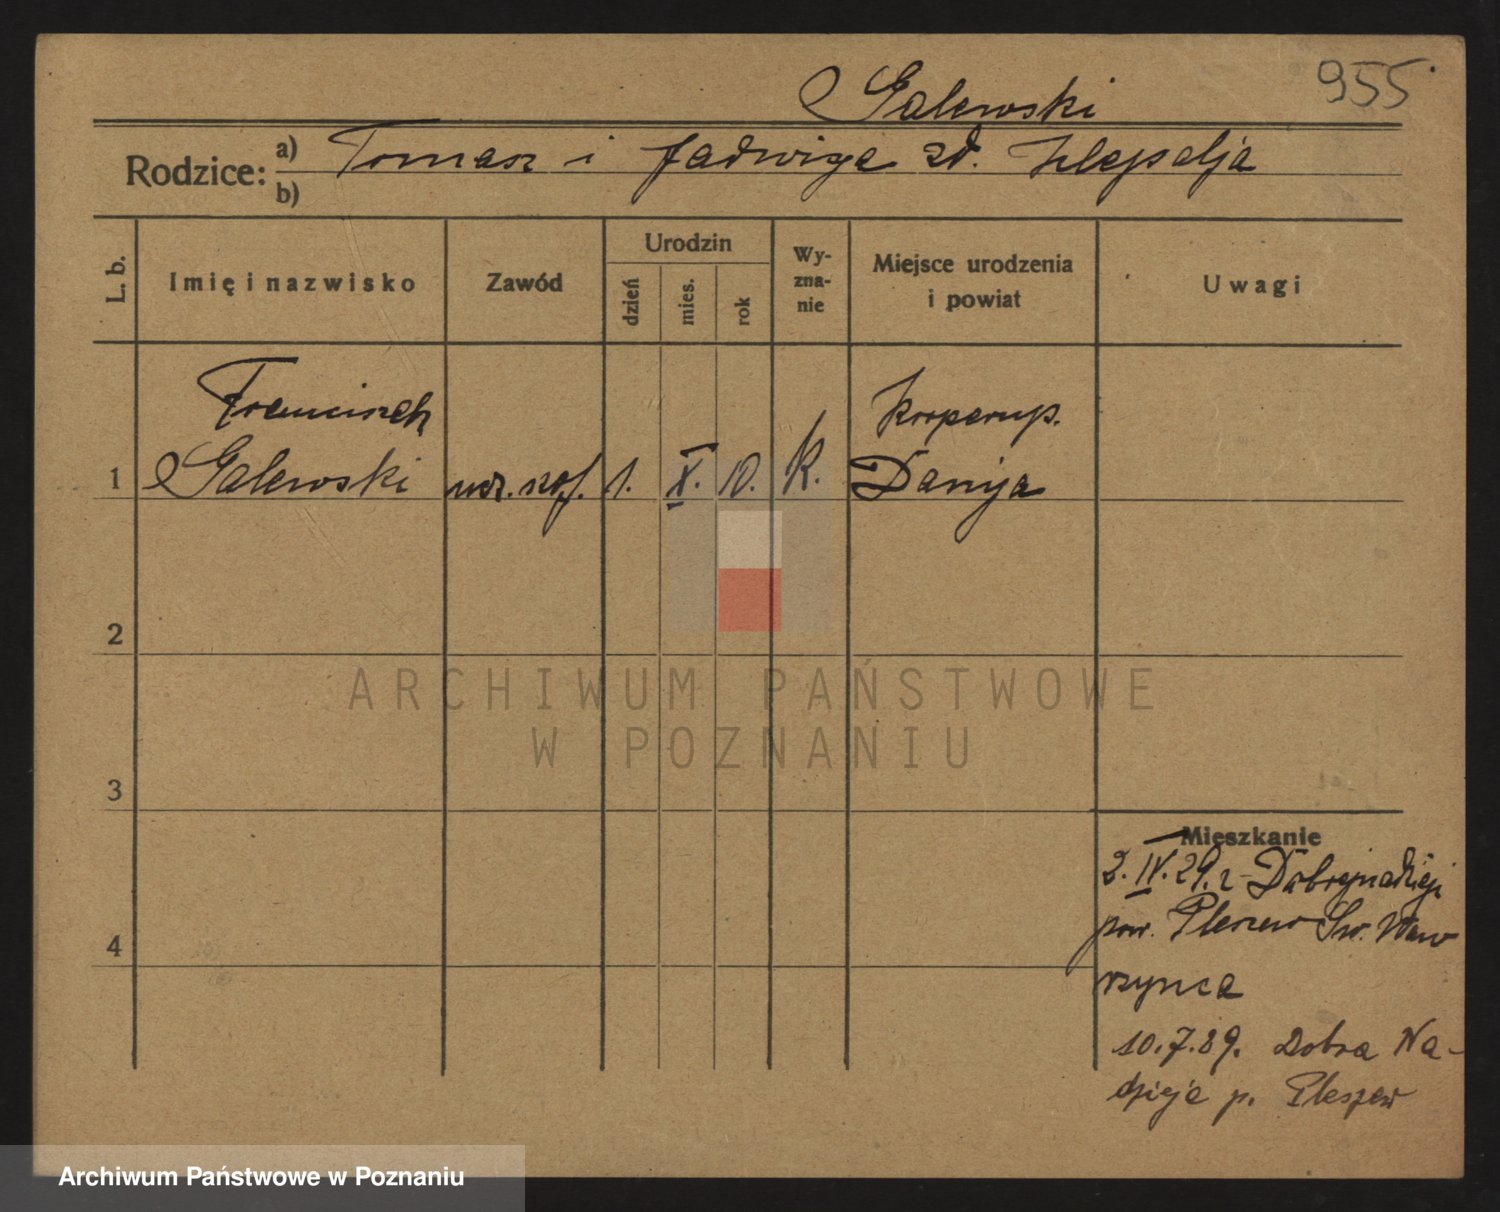 955
Galewski
Rodzice: a) Tomasz i Jadwiga zd.
b)
L. b. Imię i nazwisko Zawód Urodzin dzień mies. rok Wyznanie Miejsce urodzenia i powiat Uwagi
Franciszek
1 Galewski ucz. szof. 1. X. 10. K. Danija
2
3
4
Mieszkanie
2. IV. 29. z Dobrejnadzieji
pow. Pleszew Św. Waw
rzynca
10.7.29. Dobra Na-
dzieja p. Pleszew
ARCHIWUM PAŃSTWOWE
W POZNANIU
Archiwum Państwowe w Poznaniu